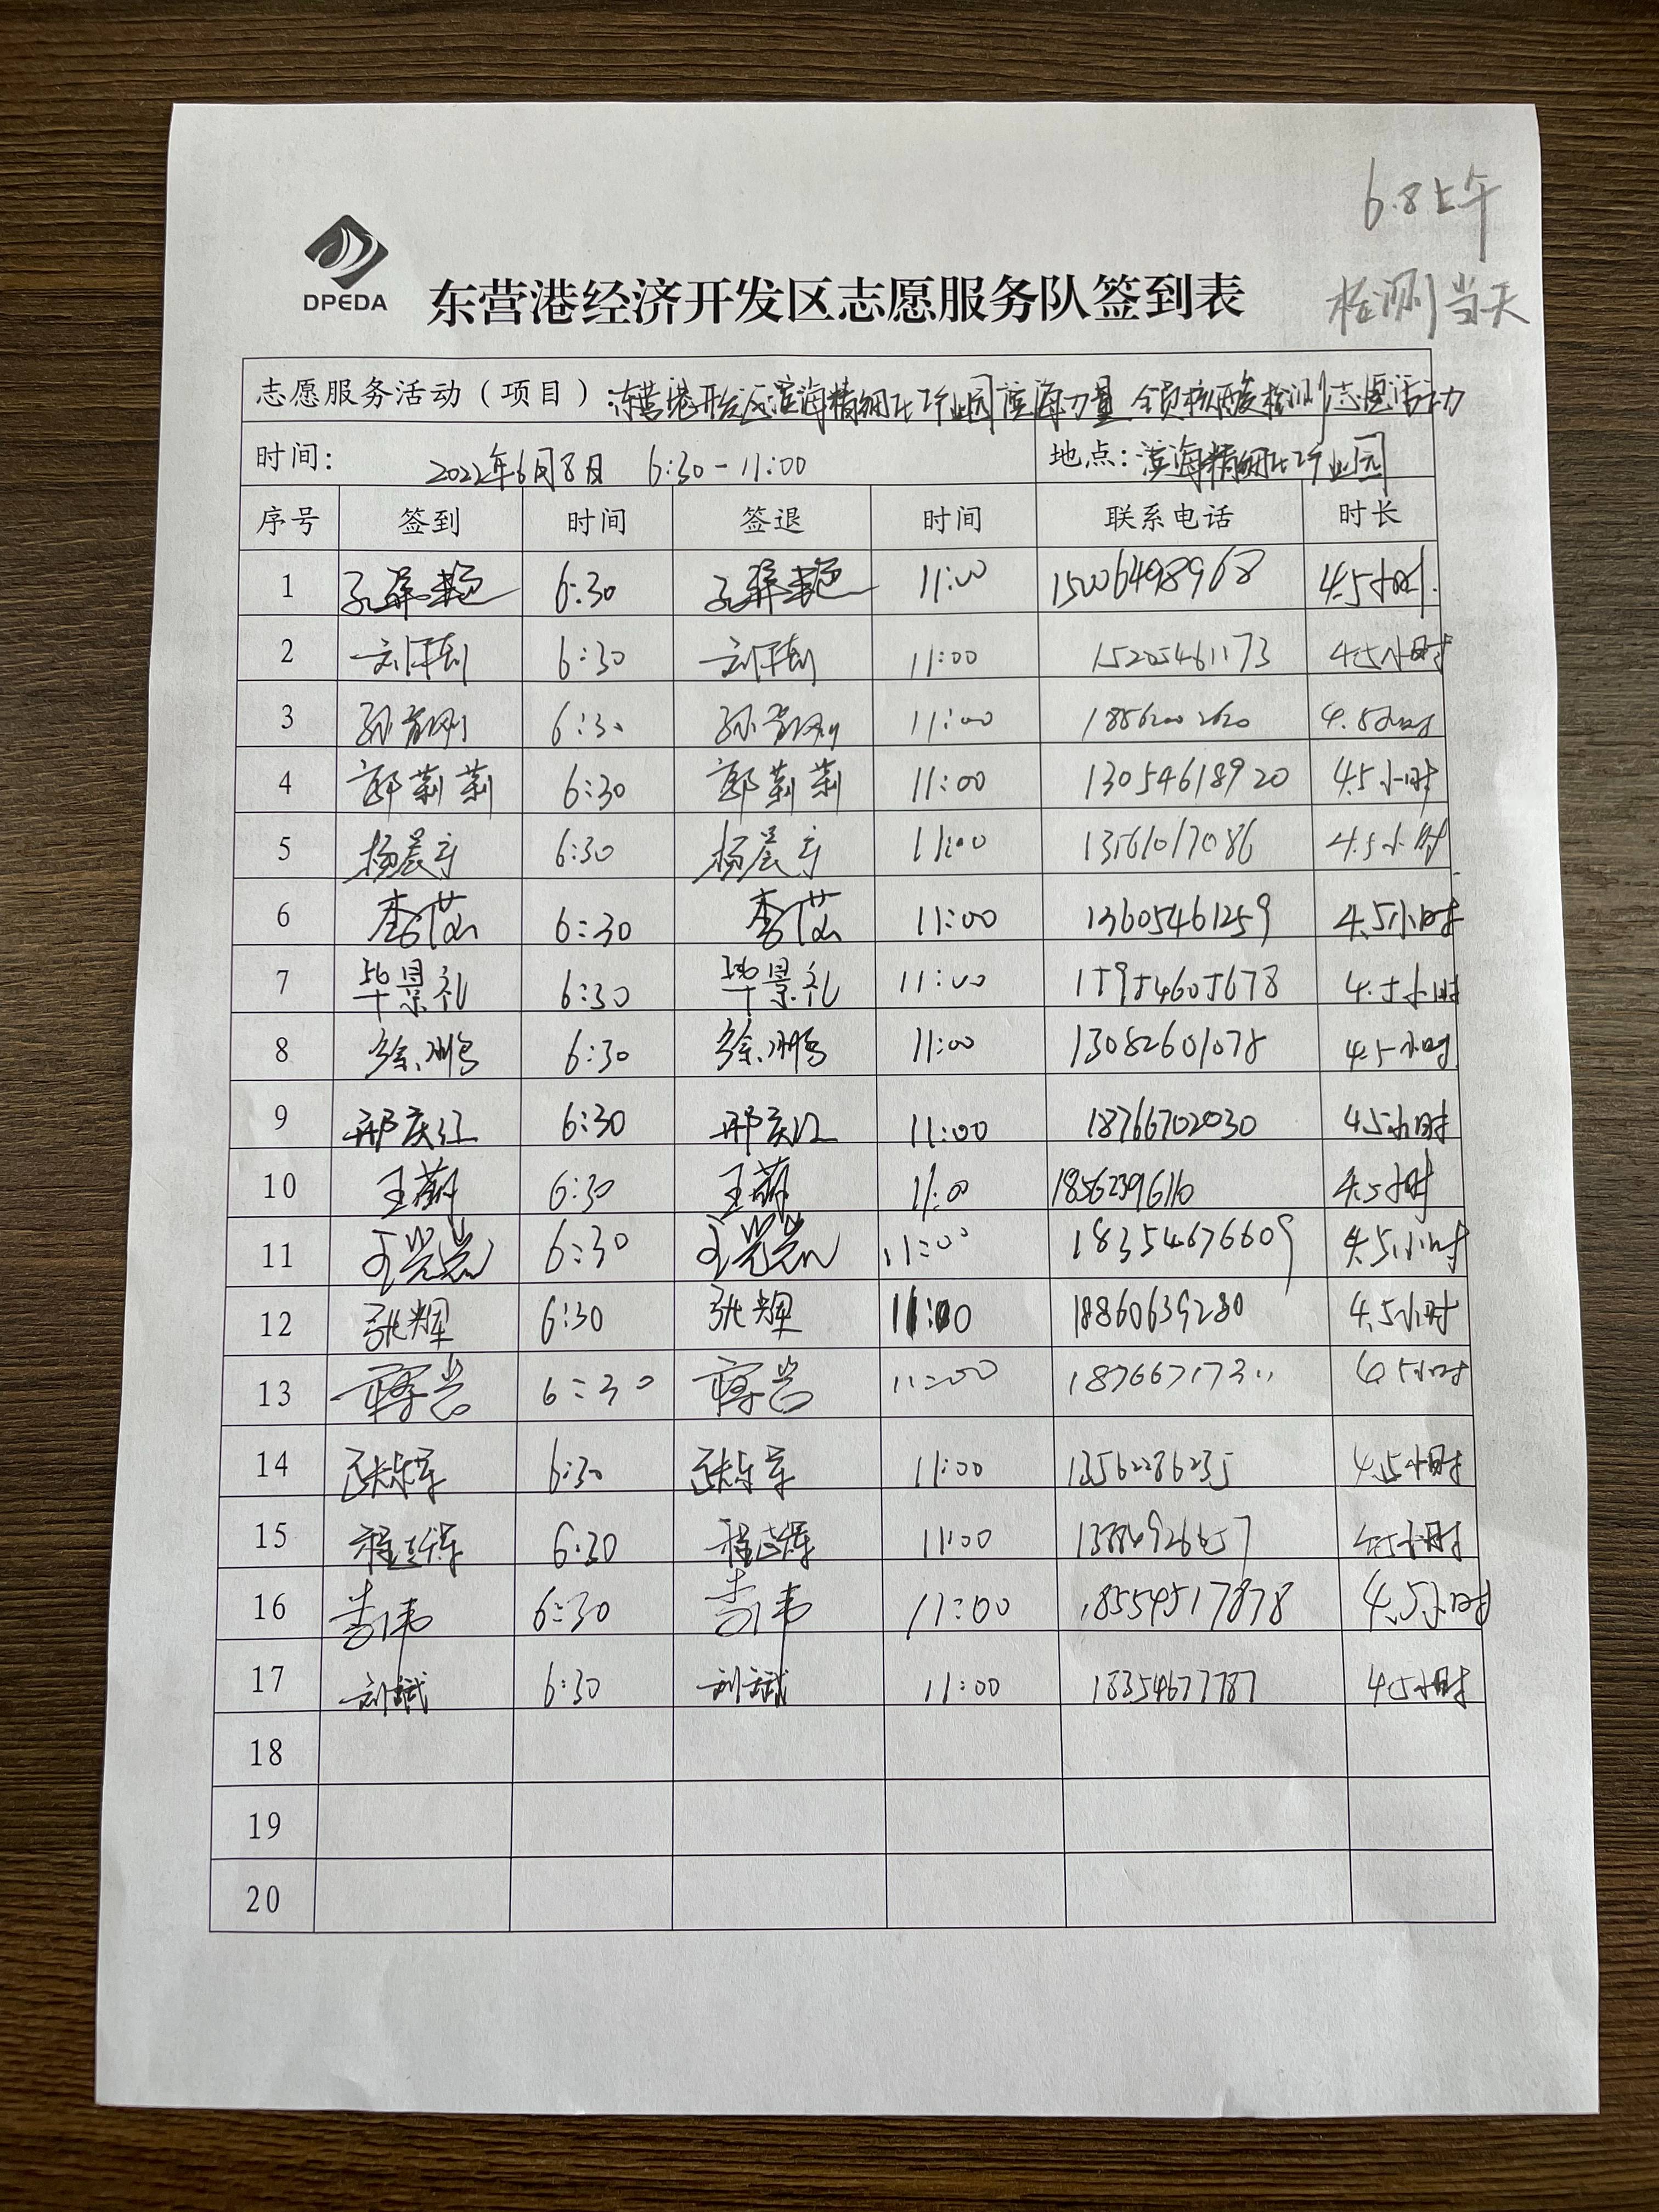 6.8上午
检测当天
DPEDA
东营港经济开发区志愿服务队签到表
志愿服务活动（项目）东营港开发区滨海精细化工产业园滨海力量 全员核酸检测志愿活动
时间： 2022年6月8日 6:30-11:00 地点：滨海精细化工产业园
序号 签到 时间 签退 时间 联系电话 时长
1 6:30 11:00 15006498968 4.5小时
2 6:30 11:00 15205461173 4.5小时
3 6:30 11:00 18562002620 4.5小时
4 郭莉莉 6:30 郭莉莉 11:00 13054618920 4.5小时
5 杨晨宇 6:30 杨晨宇 11:00 13561017086 4.5小时
6 6:30 11:00 13605461259 4.5小时
7 毕景礼 6:30 毕景礼 11:00 15954605678 4.5小时
8 徐鹏 6:30 徐鹏 11:00 13082601078 4.5小时
9 邢庆江 6:30 邢庆江 11:00 18766702030 4.5小时
10 6:30 11:00 18562396110 4.5小时
11 6:30 11:00 18354676609 4.5小时
12 张辉 6:30 张辉 11:00 18860639280 4.5小时
13 6:30 11:00 4.5小时
14 6:30 11:00 13562286235 4.5小时
15 6:30 11:00 4.5小时
16 李伟 6:30 李伟 11:00 18554517878 4.5小时
17 刘斌 6:30 刘斌 11:00 18354677787 4.5小时
18
19
20